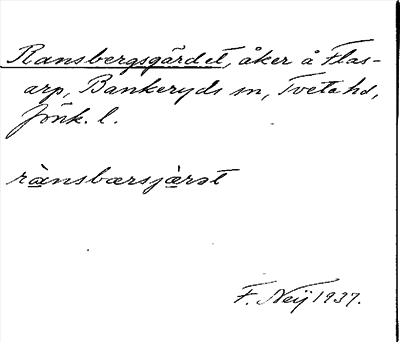 Ransbergsgärdet, åker å Flas-
arp, Bankeryds sn, Tveta hd,
Jönk. l.
rànsbærsjæ̀rət
F. Neij 1937.